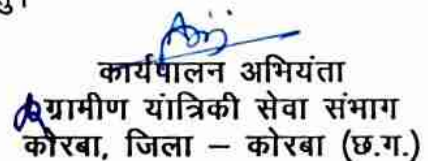 कार्यपालन अभियंता
ग्रामीण यांत्रिकी सेवा संभाग
कोरबा, जिला – कोरबा (छ.ग.)